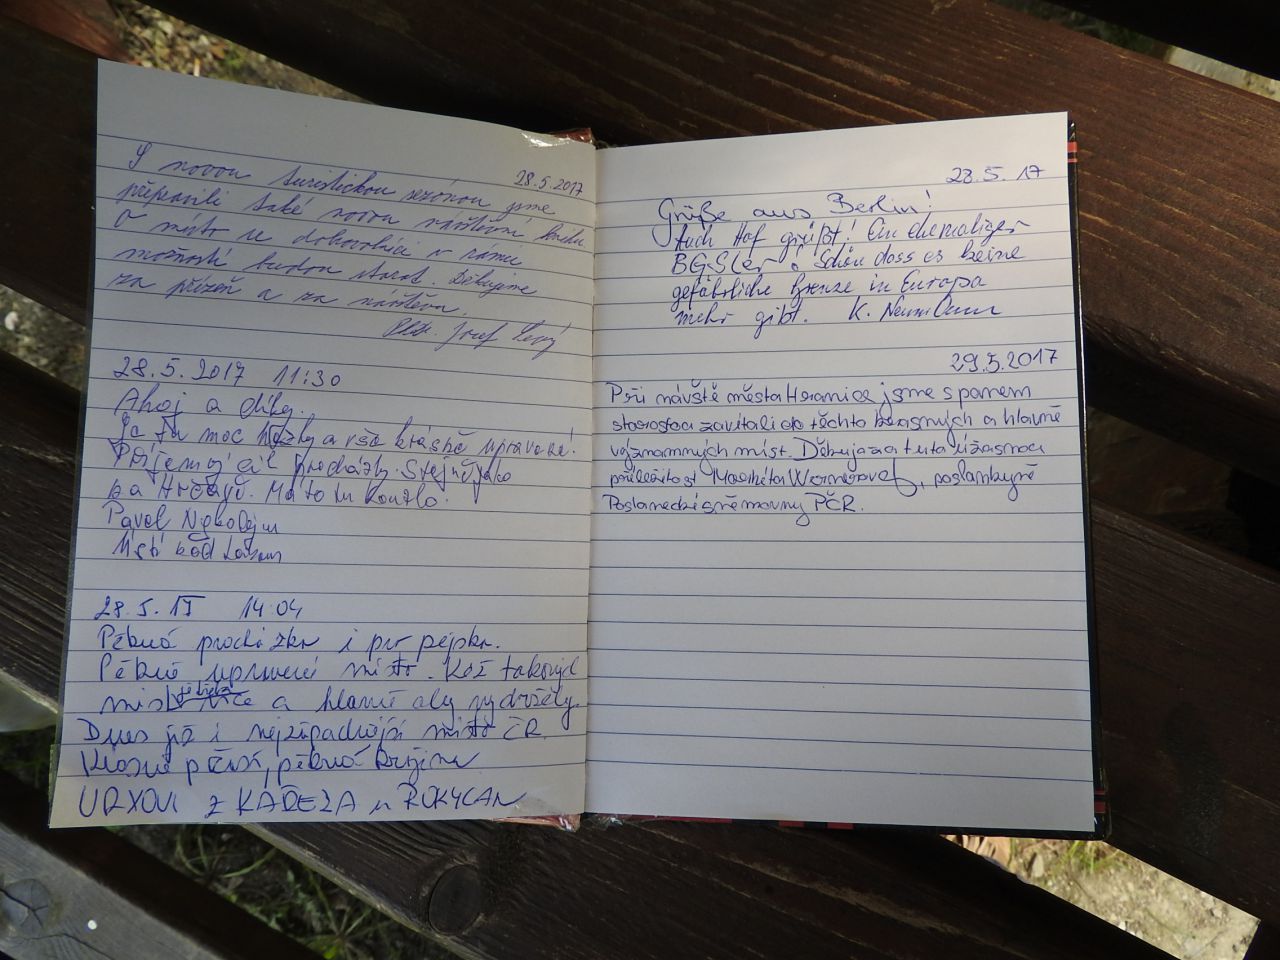 28.5.2017
S novou turistickou sezónou jsme
připravili také novou návštěvní knihu
O místo se dobrovolníci v rámci
možností budou starat. Děkujeme
za přízeň a za návštěvu.
Josef Levý
28.5.2017 11:30
Ahoj a díky.
Je tu moc hezky a vše krásně upravené.
Příjemný cíl procházky. Stejně jako
na Hrčavě. Má to tu kouzlo.
Pavel
Ústí nad Labem
28.5.17 14:04
Pěkná procházka i pro pejska.
Pěkně upravené místo. Kéž takových
míst je více a hlavně aby vydržely.
Dnes již i nejzápadnější místo ČR.
Krásné počasí, pěkná krajina
Z KAŘEZA u ROKYCAN
28.5.17
Grüße aus Berlin!
Auch Hof grüßt! Ein ehemaliger
BGSler. Schön dass es keine
gefährliche Grenze in Europa
mehr gibt. K.
29.5.2017
Při návště města Hranice jsme s panem
starostou zavítali do těchto krásných a hlavně
významných míst. Děkuji za tuto úžasnou
příležitost Markéta Wernerová, poslankyně
Poslanecké sněmovny PČR.